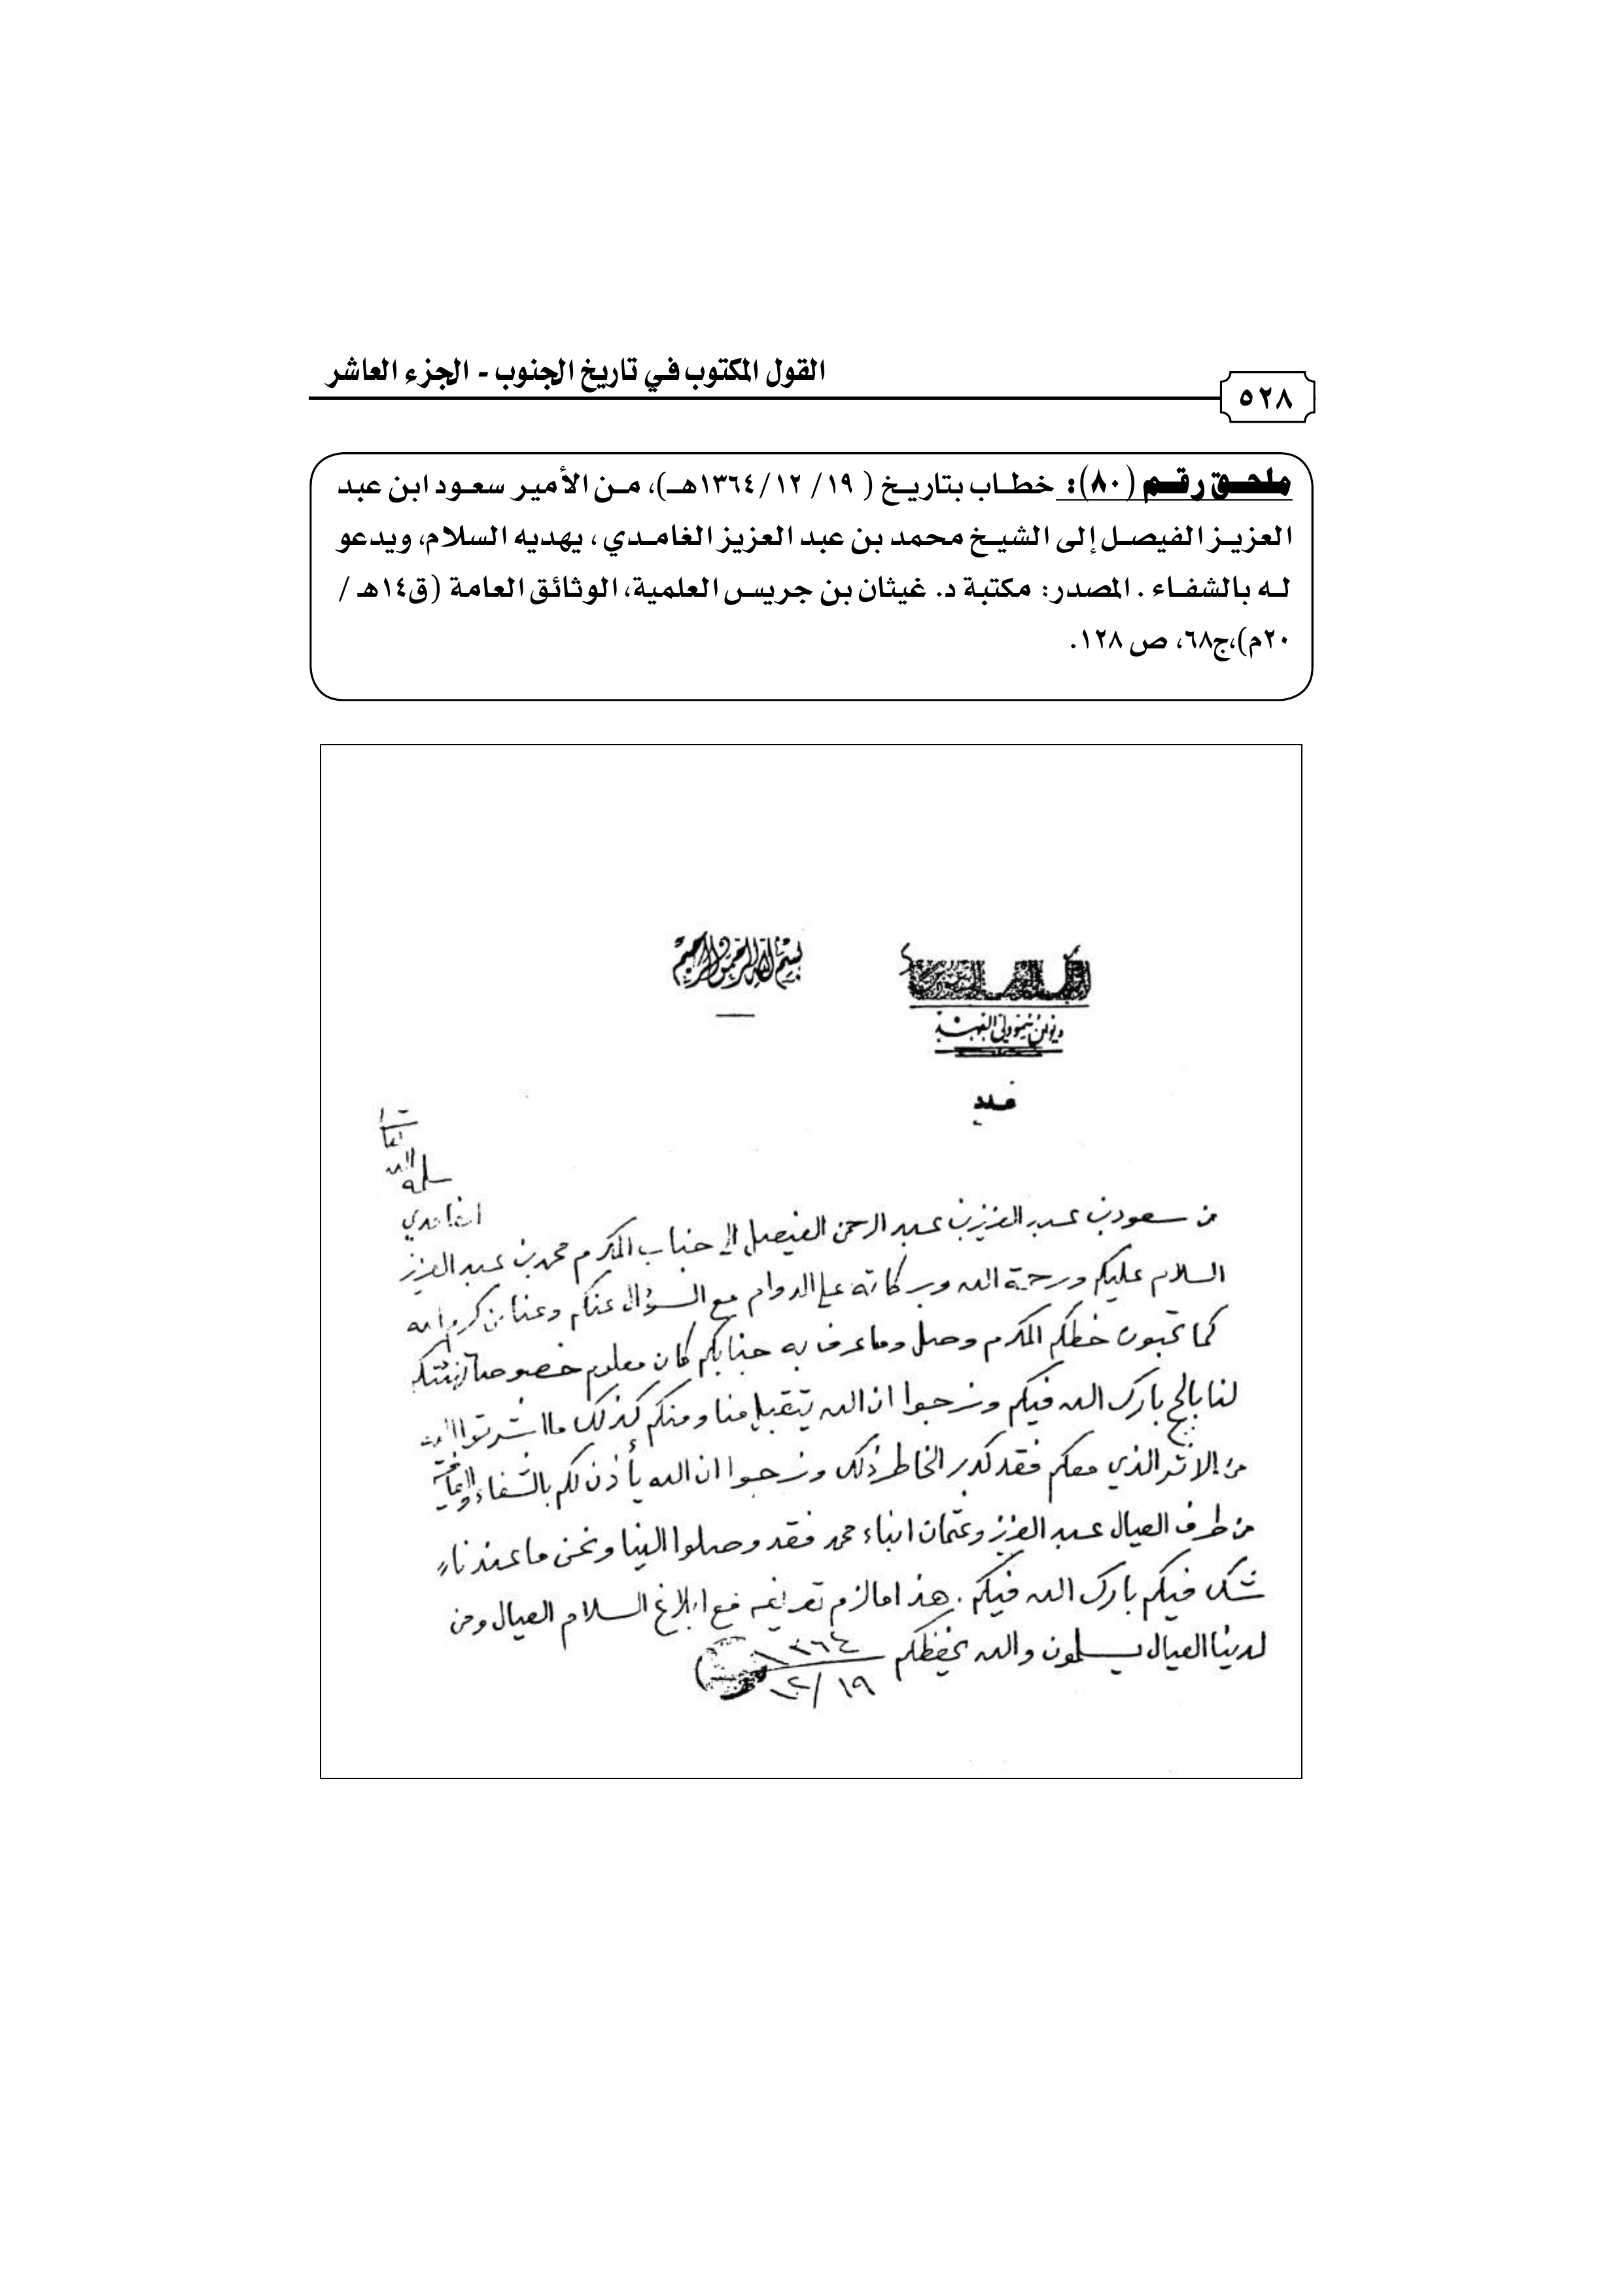 القول المكتوب في تاريخ الجنوب - الجزء العاشر
٥٢٨
ملحق رقم (٨٠): خطاب بتاريخ ( ١٩/ ١٢/ ١٣٦٤هـ)، من الأمير سعود ابن عبد
العزيز الفيصل إلى الشيخ محمد بن عبد العزيز الغامدي، يهديه السلام، ويدعو
له بالشفاء . المصدر: مكتبة د. غيثان بن جريس العلمية، الوثائق العامة (ق١٤هـ /
٢٠م)،ج٦٨، ص ١٢٨.
بسم الله الرحمن الرحيم
عدد
سلمه الله
الغامدي
من سعود بن عبد العزيز بن عبد الرحمن الفيصل الى جناب المكرم محمد بن عبد العزيز
السلام عليكم ورحمة الله وبركاته على الدوام مع السؤال عنكم وعنا من كرم الله
كما تحبون خطكم المكرم وصل وما عرف به جنابكم كان معلوم خصوصا تهنئتكم
لنا بالحج بارك الله فيكم ونرجوا ان الله يتقبل منا ومنكم كذلك ما اشرتوا اليه
من الاثر الذي معكم فقد كدر الخاطر ذلك ونرجوا ان الله يأذن لكم بالشفاء والعافية
من طرف العيال عبد العزيز وعثمان ابناء محمد فقد وصلوا الينا ونحن ما عندنا
شك فيكم بارك الله فيكم . هذا ما لزم تعريفه مع ابلاغ السلام العيال ومن
لدينا العيال يسلمون والله يحفظكم ١٣٦٤
١٢/١٩